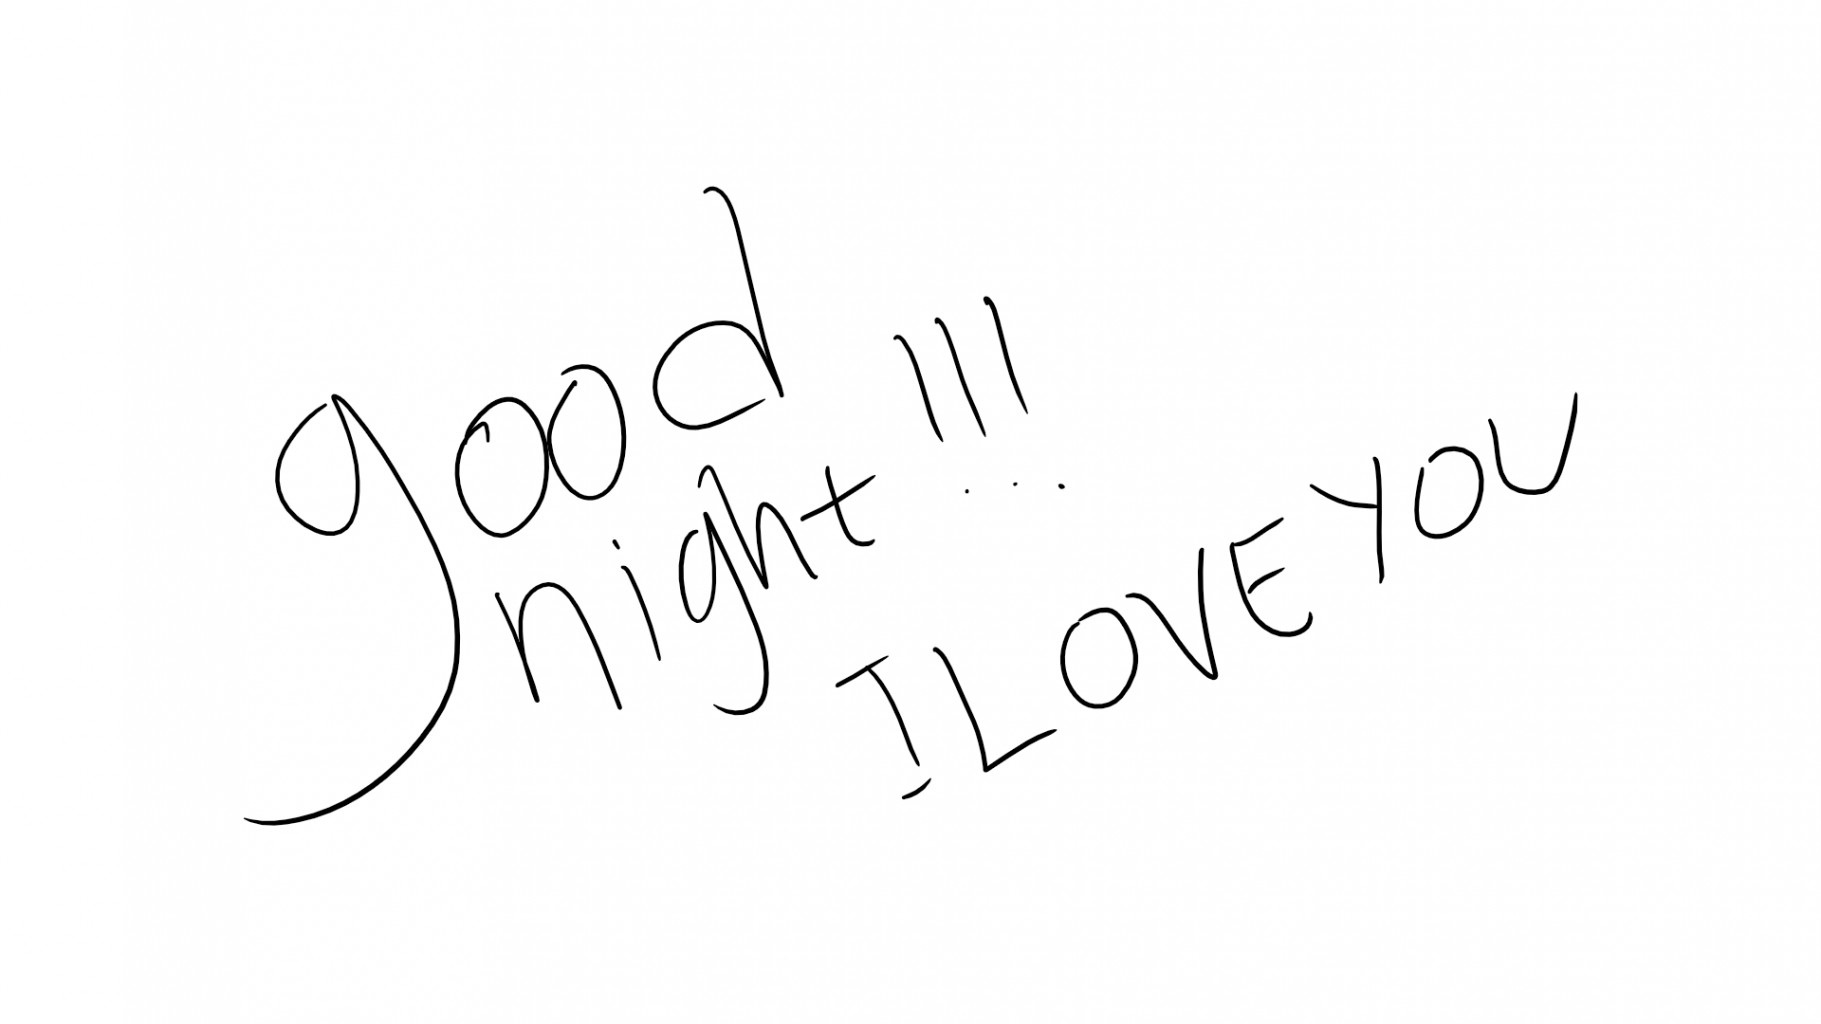 good
night!!!
I LOVE YOU